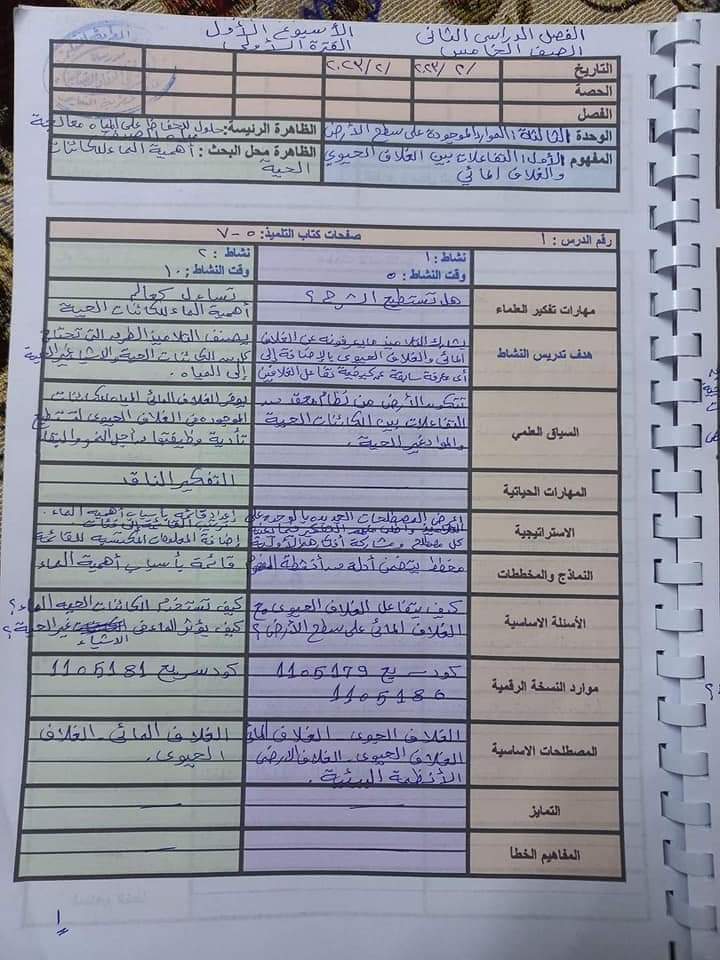 الفصل الدراسي الثاني الأسبوع الأول
الصف الخامس الفترة الأولى
التاريخ ٢٠٢٣/٢/ ٢٠٢٣/٢/
الحصة
الفصل
الوحدة الثالثة: الموارد الموجودة على سطح الأرض
الظاهرة الرئيسة: حلول للحفاظ على المياه معالجة
المفهوم الأول: التفاعلات بين الغلاف الحيوي
والغلاف المائي
الظاهرة محل البحث : أهمية الماء للكائنات
الحية
رقم الدرس : ١ صفحات كتاب التلميذ: ٥ - ٧
نشاط : ١
وقت النشاط : ٥
نشاط : ٢
وقت النشاط : ١٠
مهارات تفكير العلماء
هل تستطيع الشرح ؟
تساءل كعالم
أهمية الماء للكائنات الحية
هدف تدريس النشاط
يشارك التلاميذ ما يعرفونه عن الغلاف
المائي والغلاف الحيوي بالإضافة إلى
أي معرفة سابقة عن كيفية تفاعل الغلافين
يصنف التلاميذ الطرق التي تحتاج
الكائنات الحية والأشياء غير الحية
إلى المياه .
السياق العلمي
تتكون الأرض من نظام معقد من
التفاعلات بين الكائنات الحية
والمواد غير الحية .
يوفر الغلاف المائي المياه للكائنات
الموجودة في الغلاف الحيوي لتستطيع
تأدية وظيفتها من أجل النمو والبقاء
المهارات الحياتية
التفكير الناقد
الاستراتيجية
اعرض المصطلحات الجديدة بالوحدة على
كل مصطلح ومشاركة أفكارهم الأولية
إعداد قائمة بأسباب أهمية الماء .
ترتيب القائمة إلى فئات
إضافة المعلومات المكتسبة للقائمة
النماذج والمخططات
مخطط يتضمن أدلة من أنشطة المفهوم
قائمة بأسباب أهمية الماء
الأسئلة الاساسية
كيف يتفاعل الغلاف الحيوي مع
الغلاف المائي على سطح الأرض ؟
كيف تستخدم الكائنات الحية الماء ؟
كيف يؤثر الماء في الأشياء غير الحية ؟
موارد النسخة الرقمية
كود سريع 1105179
1105180
كود سريع 1105181
المصطلحات الاساسية
الغلاف الجوي - الغلاف المائي
الغلاف الحيوي - الغلاف الأرضي
الأنظمة البيئية .
الغلاف المائي - الغلاف
الحيوي .
التمايز
المفاهيم الخطأ
١